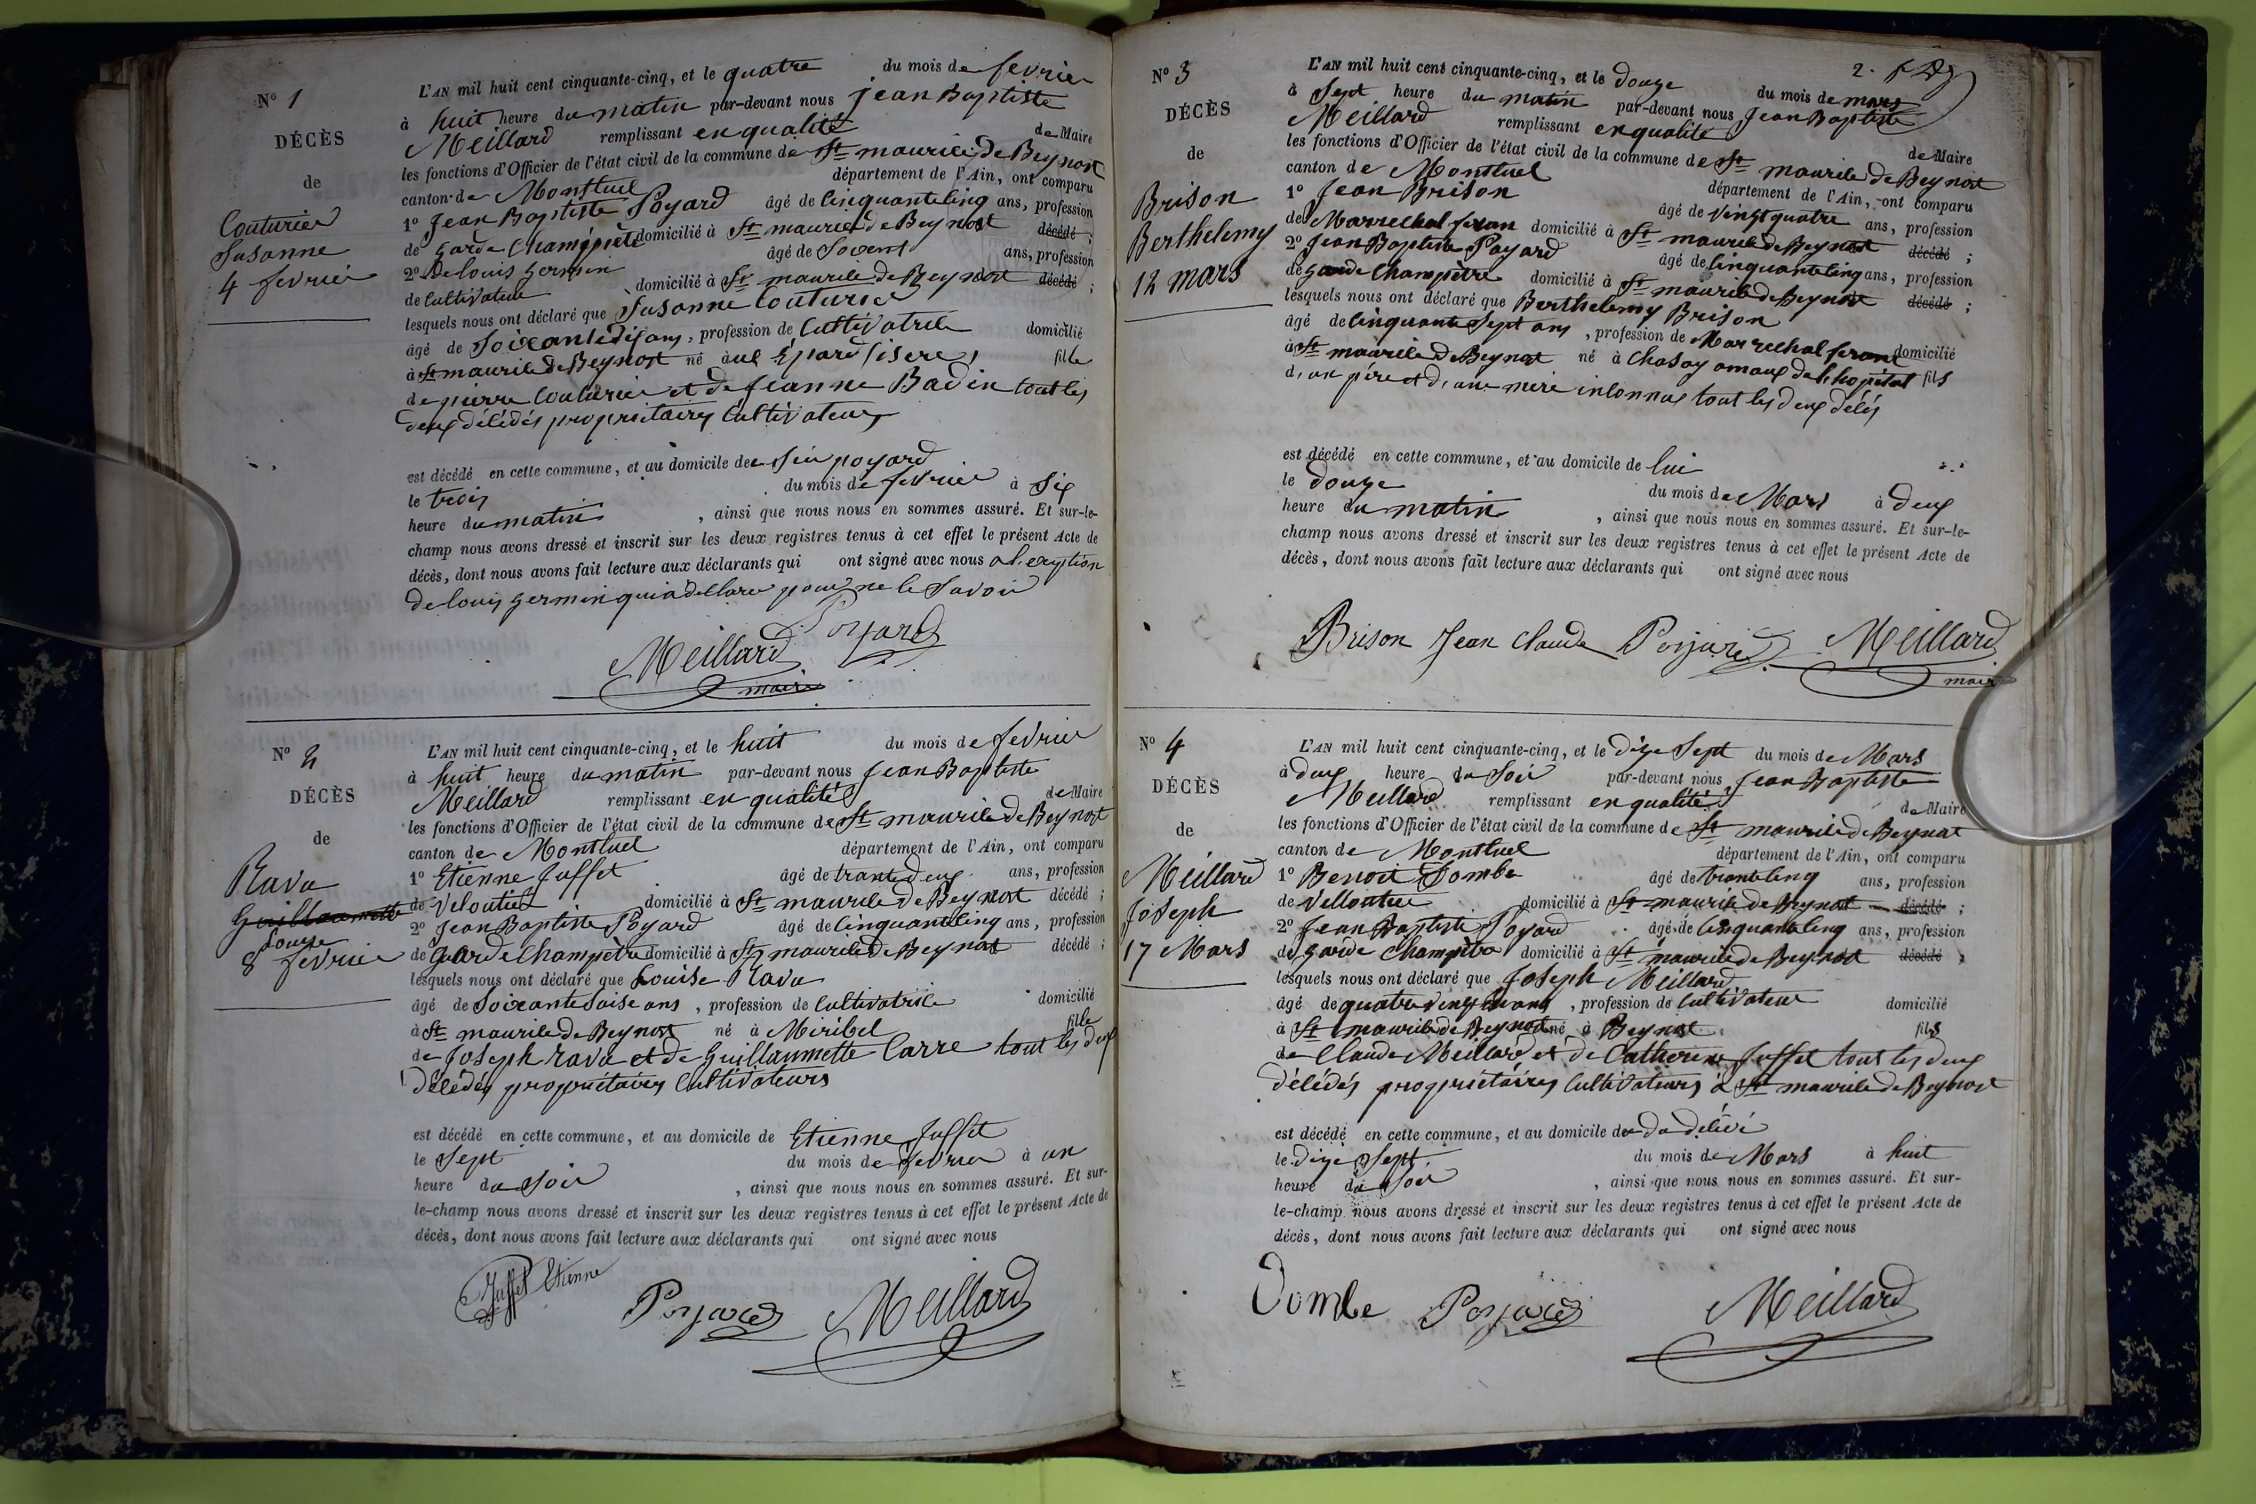 N° 1
DÉCÈS
de
Couturier
Susanne
4 fevrier
L'AN mil huit cent cinquante-cinq, et le quatre du mois de fevrier
à huit heure du matin par-devant nous jean Baptiste
Meillard remplissant en qualité de Maire
les fonctions d'Officier de l'état civil de la commune de St maurice de Beynost
canton de Montluel département de l'Ain, ont comparu
1° Jean Baptiste Poyard âgé de cinquante cinq ans, profession
de garde Champètre domicilié à St maurice de Beynost décédé ;
2° De louis germin âgé de soixent ans, profession
de cultivateur domicilié à St maurice de Beynost décédé ;
lesquels nous ont déclaré que Susanne Couturier
âgé de soixante dix ans, profession de Cultivatrice domicilié
à St maurice de Beynost né à fille
de pierre Couturier et de jeanne Badin tout les
deux décédés proprietaires Cultivateurs
est décédé en cette commune, et au domicile de poyard
le trois du mois de fevrier à six
heure du matin , ainsi que nous nous en sommes assuré. Et sur-le-
champ nous avons dressé et inscrit sur les deux registres tenus à cet effet le présent Acte de
décès, dont nous avons fait lecture aux déclarants qui ont signé avec nous a l'exeption
de louis germin qui a declaré pour ne le savoir
Poyard
Meillard
maire
N° 2
DÉCÈS
de
Rava
Guillaumette
Louise
8 fevrier
L'AN mil huit cent cinquante-cinq, et le huit du mois de fevrier
à huit heure du matin par-devant nous Jean Baptiste
Meillard remplissant en qualité de Maire
les fonctions d'Officier de l'état civil de la commune de St maurice de Beynost
canton de Montluel département de l'Ain, ont comparu
1° Etienne Juffet âgé de trante deux ans, profession
de Veloutier domicilié à St maurice de Beynost décédé ;
2° Jean Baptiste Poyard âgé de cinquante cinq ans, profession
de garde Champètre domicilié à St maurice de Beynost décédé ;
lesquels nous ont déclaré que Louise Rava
âgé de soixante saise ans , profession de Cultivatrice domicilié
à St maurice de Beynost né à Miribel fille
de Joseph rava et de Guillaumette Carre tout les deux
décédés proprietaires Cultivateurs
est décédé en cette commune, et au domicile de Etienne Juffet
le sept du mois de fevrier à un
heure du soir , ainsi que nous nous en sommes assuré. Et sur-
le-champ nous avons dressé et inscrit sur les deux registres tenus à cet effet le présent Acte de
décès, dont nous avons fait lecture aux déclarants qui ont signé avec nous
Juffet Etienne Poyard Meillard
2.
N° 3
DÉCÈS
de
Brison
Berthelemy
12 mars
L'AN mil huit cent cinquante-cinq, et le douze du mois de mars
à sept heure du matin par-devant nous Jean Baptiste
Meillard remplissant en qualité de Maire
les fonctions d'Officier de l'état civil de la commune de St maurice de Beynost
canton de Montluel département de l'Ain, ont comparu
1° Jean Brison âgé de vingt quatre ans, profession
de Marrechal feran domicilié à St maurice de Beynost décédé ;
2° Jean Baptiste Poyard âgé de cinquante cinq ans, profession
de garde Champètre domicilié à St maurice de Beynost décédé ;
lesquels nous ont déclaré que Berthelemy Brison
âgé de cinquante sept ans , profession de Marrechal ferant domicilié
à St maurice de Beynost né à de l'hopital fils
d'un père et d'une mere inconnus tout les deux
est décédé en cette commune, et au domicile de lui
le douze du mois de Mars à deux
heure du matin , ainsi que nous nous en sommes assuré. Et sur-le-
champ nous avons dressé et inscrit sur les deux registres tenus à cet effet le présent Acte de
décès, dont nous avons fait lecture aux déclarants qui ont signé avec nous
Brison Jean Claude Poyard Meillard
maire
N° 4
DÉCÈS
de
Meillard
Joseph
17 Mars
L'AN mil huit cent cinquante-cinq, et le dixe Sept du mois de Mars
à deux heure du soir par-devant nous Jean Baptiste
Meillard remplissant en qualité de Maire
les fonctions d'Officier de l'état civil de la commune de St maurice de Beynost
canton de Montluel département de l'Ain, ont comparu
1° Benoit Dombe âgé de trante cinq ans, profession
de Velloutier domicilié à St maurice de Beynost décédé ;
2° Jean Baptiste Poyard âgé de cinquante cinq ans, profession
de garde Champètre domicilié à St maurice de Beynost décédé ;
lesquels nous ont déclaré que Joseph Meillard
âgé de quatre vingt ans , profession de Cultivateur domicilié
à St maurice de Beynost né à Beynost fils
de Claude Meillard et de Catherine Juffet tout les deux
décédés proprietaires Cultivateurs à St maurice de Beynost
est décédé en cette commune, et au domicile du décédé
le dixe sept du mois de Mars à huit
heure du soir , ainsi que nous nous en sommes assuré. Et sur-
le-champ nous avons dressé et inscrit sur les deux registres tenus à cet effet le présent Acte de
décès, dont nous avons fait lecture aux déclarants qui ont signé avec nous
Dombe Poyard Meillard